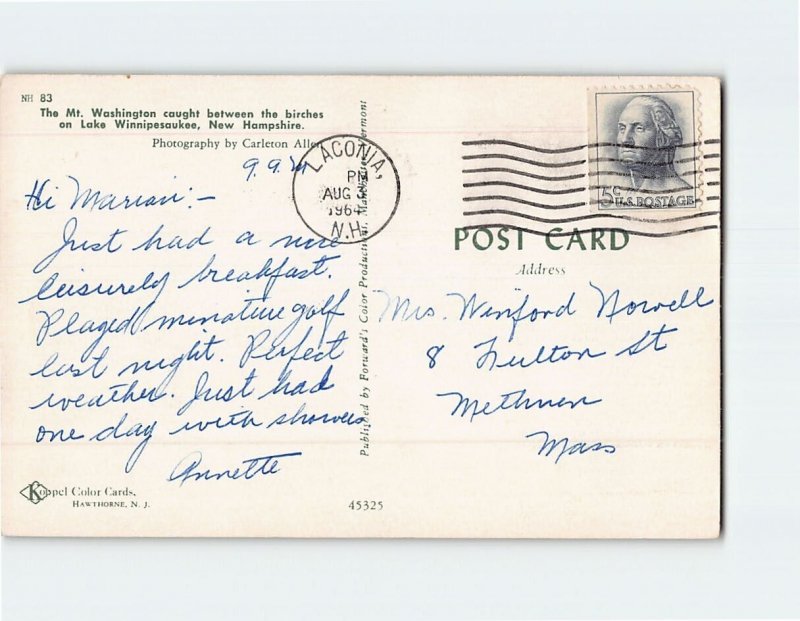 NH 83
The Mt. Washington caught between the birches
on Lake Winnipesaukee, New Hampshire.
Photography by Carleton Allen
Hi Marian:-
Just had a nice
leisurely breakfast.
Played minature golf
last night. Perfect
weather. Just had
one day with showers
Annette
Koppel Color Cards,
HAWTHORNE, N. J.
45325
Published by Forward's Color Productions, Manchester, Vermont
LACONIA,
PM
AUG
196
N.H.
5¢
U.S. POSTAGE
POST CARD
Address
Mrs. Winford Nowell
8 Fulton St
Methuen
Mass